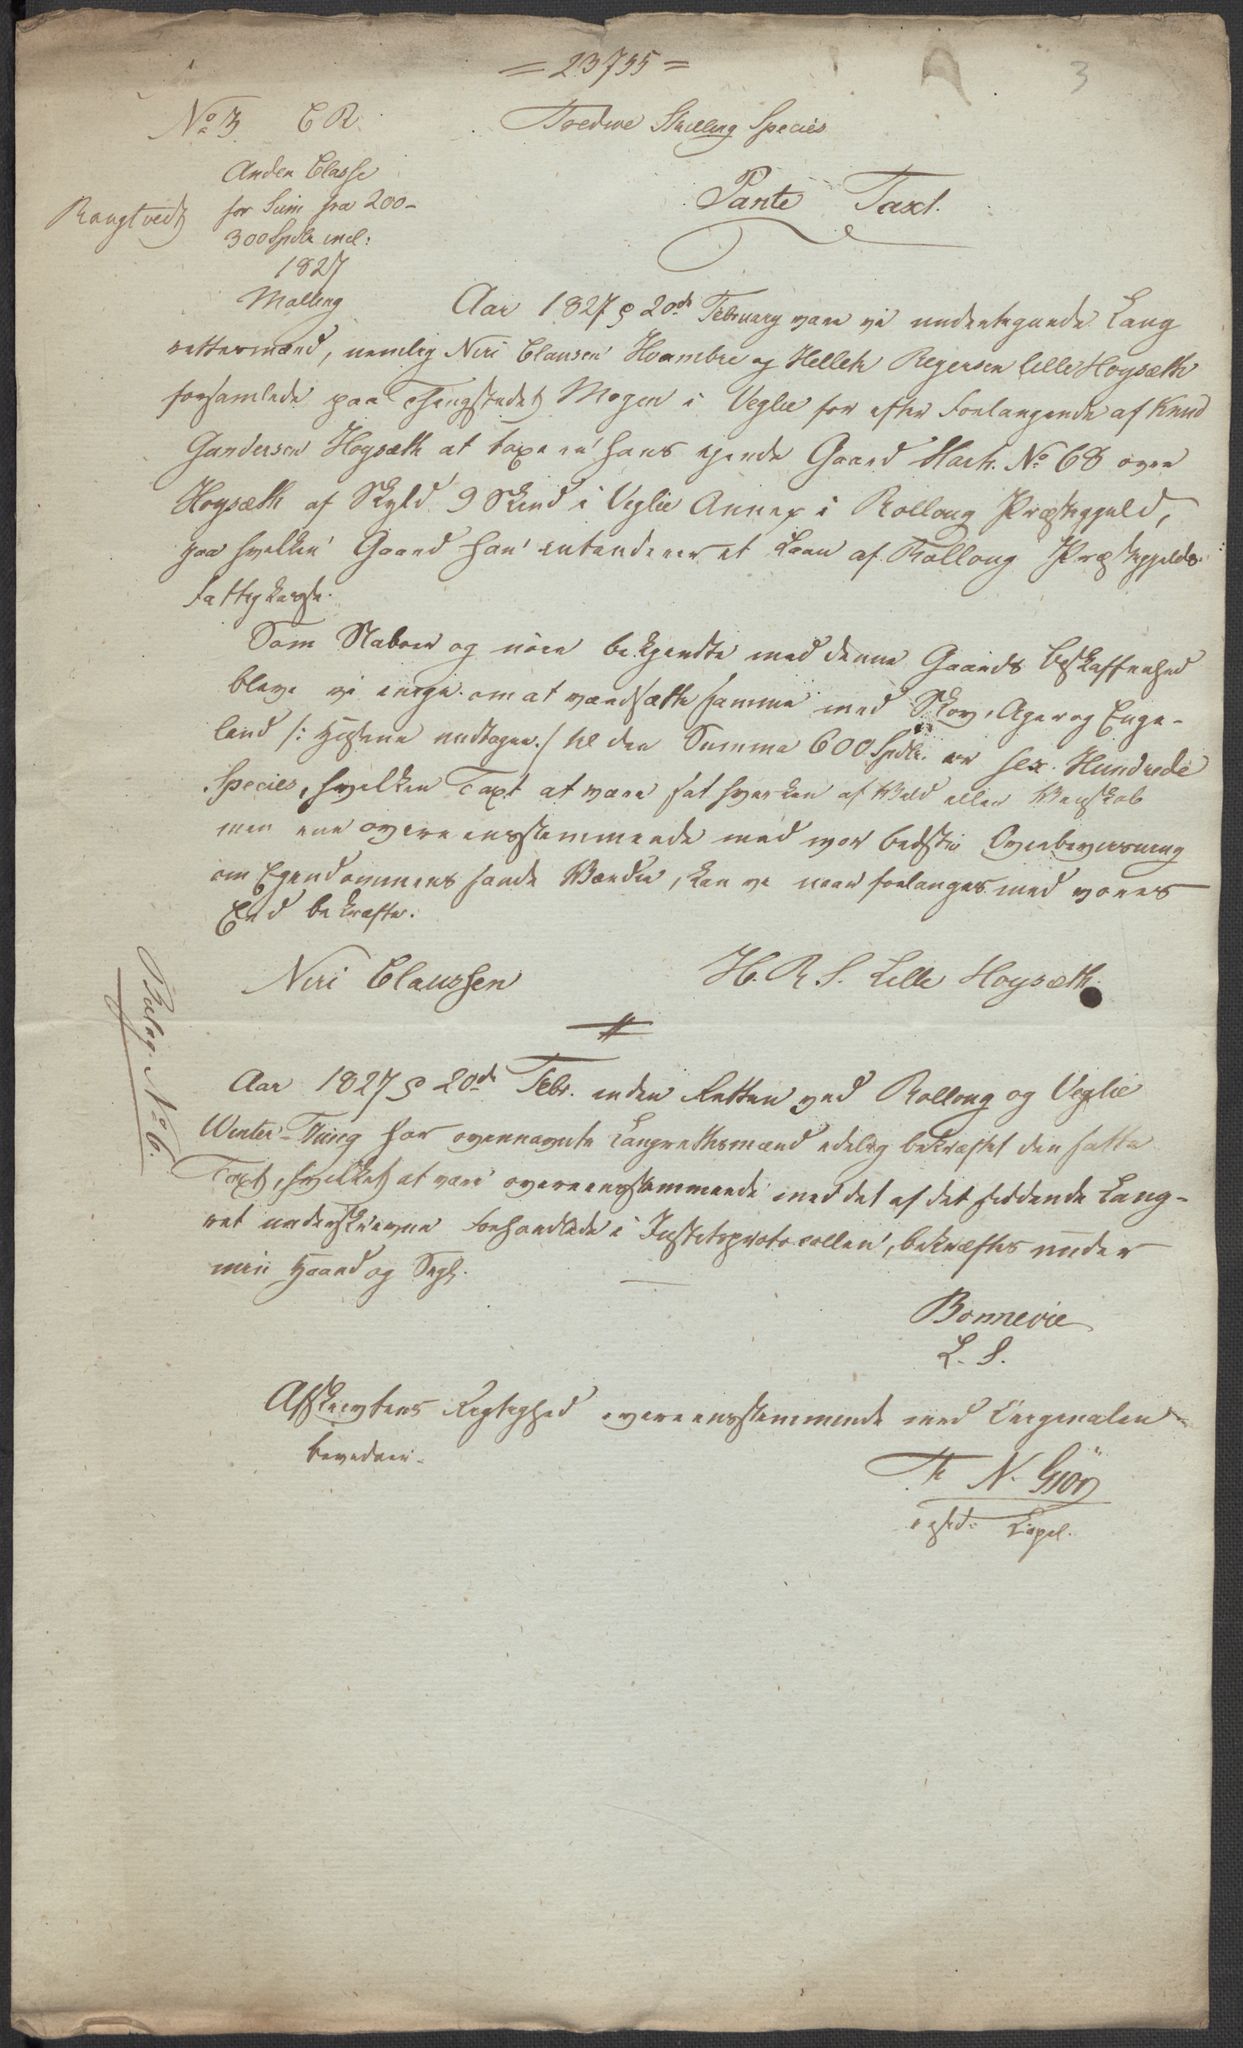 = 23735 =
3
No 3 C R.
Tredive Skilling Species
Anden Classe
for Sum fra 200-
300 Spdlr incl:
1827
Malling
Rangtvedt
Pante Taxt.
Aar 1827 d 20de February vare vi undertegnede Laug
rettesmænd, nemlig Niri Clausen Hvambre og Hellek Regersen lille Hoysæth
forsamlede paa Thingstedet Mogen i Veglie for efter Forlangende af Knud
Gundersen Hoysæth at taxere hans ejende Gaard Matr. No 68 øvre
Hoysæth af Skyld 9 Skind i Veglie Annex i Rolloug Præstegjeld,
paa hvilken Gaard han intenderer et Laan af Rolloug Præstegjelds
Fattigkasse.
Som Naboer og nöie bekjendte med denne Gaards Beskaffenhed
bleve vi enige om at værdsætte samme med Skov, Ager og Enge-
land /: Husene undtagen :/ til den Summa 600 Spdlr. er sex Hundrede
Species, hvilken Taxt at være sat hverken af Vild eller Venskab
men ene overeensstemmende med vor bedste Overbeviisning
om Ejendommens sande Værdie, kan vi naar forlanges med vores
Eed bekræfte.
Niri Claussen
H. R. S. Lille Hoysæth.
Bilag No 6.
Aar 1827 d 20de Febr. inden Retten ved Rolloug og Veglie
Winter-Thing har ovennævnte Laugrettesmænd edelig bekræftet den satte
Taxt, hvilket at være overeensstemmende med det af det siddende Laug-
ret underskrevne Forhandlede i Justitsprotocollen, bekræftes under
min Haand og Segl.
Bonnevie
L. S.
Afskrivtens Rigtighed overeensstemmende med Originalen
bevidner.
N. Giör
Capel.